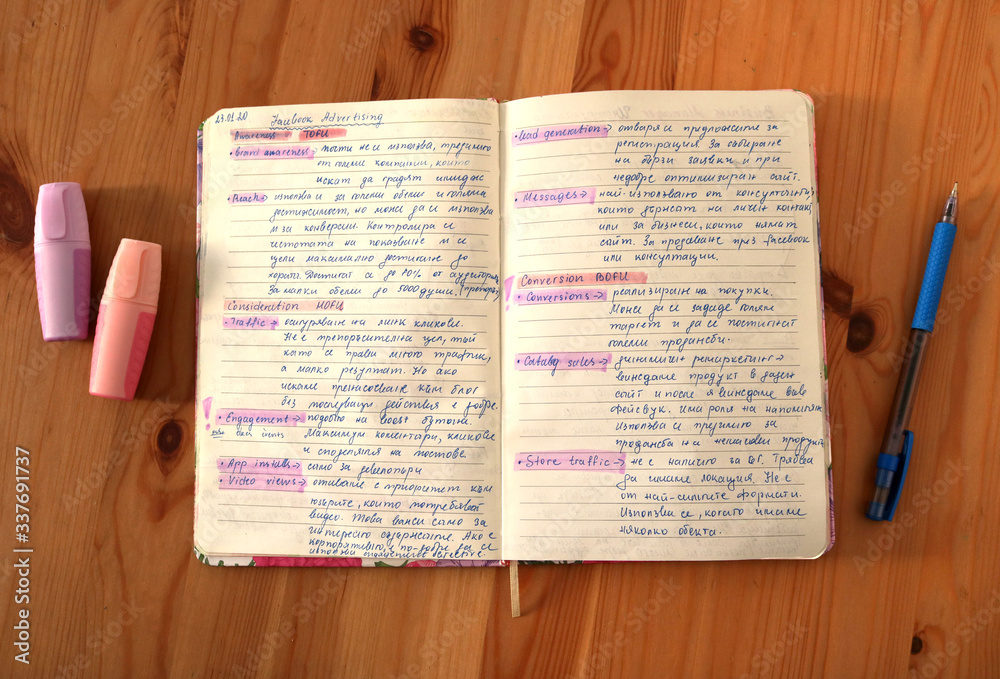 23.01.20 Facebook Advertising
Awareness - TOFU
• Brand awareness → почти не се използва, предимно
от големи компании, които
искат да градят имидж
• Reach → използва се за големи обекти и голяма
достижимост, но може да се използва
и за конверсии. Контролира се
честотата на показване и се
цели максимално достигане до
хората. Достигат се до 80% от аудиторията
За малки обекти до 5000 души. (пример)
Consideration MOFU
• Traffic → осигуряване на линк кликове.
Не е препоръчителна цел, тъй
като се прави много трафик,
а малко резултат. Но ако
искаме пренасочване към блог
без последващи действия е добре.
! • Engagement → подобно на boost бутона.
Максимум коментари, кликове
и споделяния на постове
• App installs → само за девелопъри
• Video views → отиване с приоритет към
юзърите, които потребяват
видео. Това важи само за
интересно съдържание. Ако е
корпоративно, е по-добре да се
използва objective.
• Lead generation → отваря се предложение за
регистрация. За събиране
на бързи заявки и при
недобре оптимизиран сайт.
• Messages → най-използвано от консултанти,
които държат на личен контакт
или за бизнеси, които нямат
сайт. За продаване през facebook
или консултации.
Conversion BOFU
! • Conversions → реализиране на покупки.
Може да се зададе голям
таргет и да се постигнат
големи продажби.
• Catalog sales → динамичен ремаркетинг →
виждаме продукт в даден
сайт и после я виждаме във
фейсбук. Има роля на напомняне
Използва се предимно за
продажба на неписови продукти
• Store traffic → не е налично за БГ. Трябва
да имаме локация. Не е
от най-силните формати.
Използва се, когато имаме
няколко обекта.
Adobe Stock | 337691737